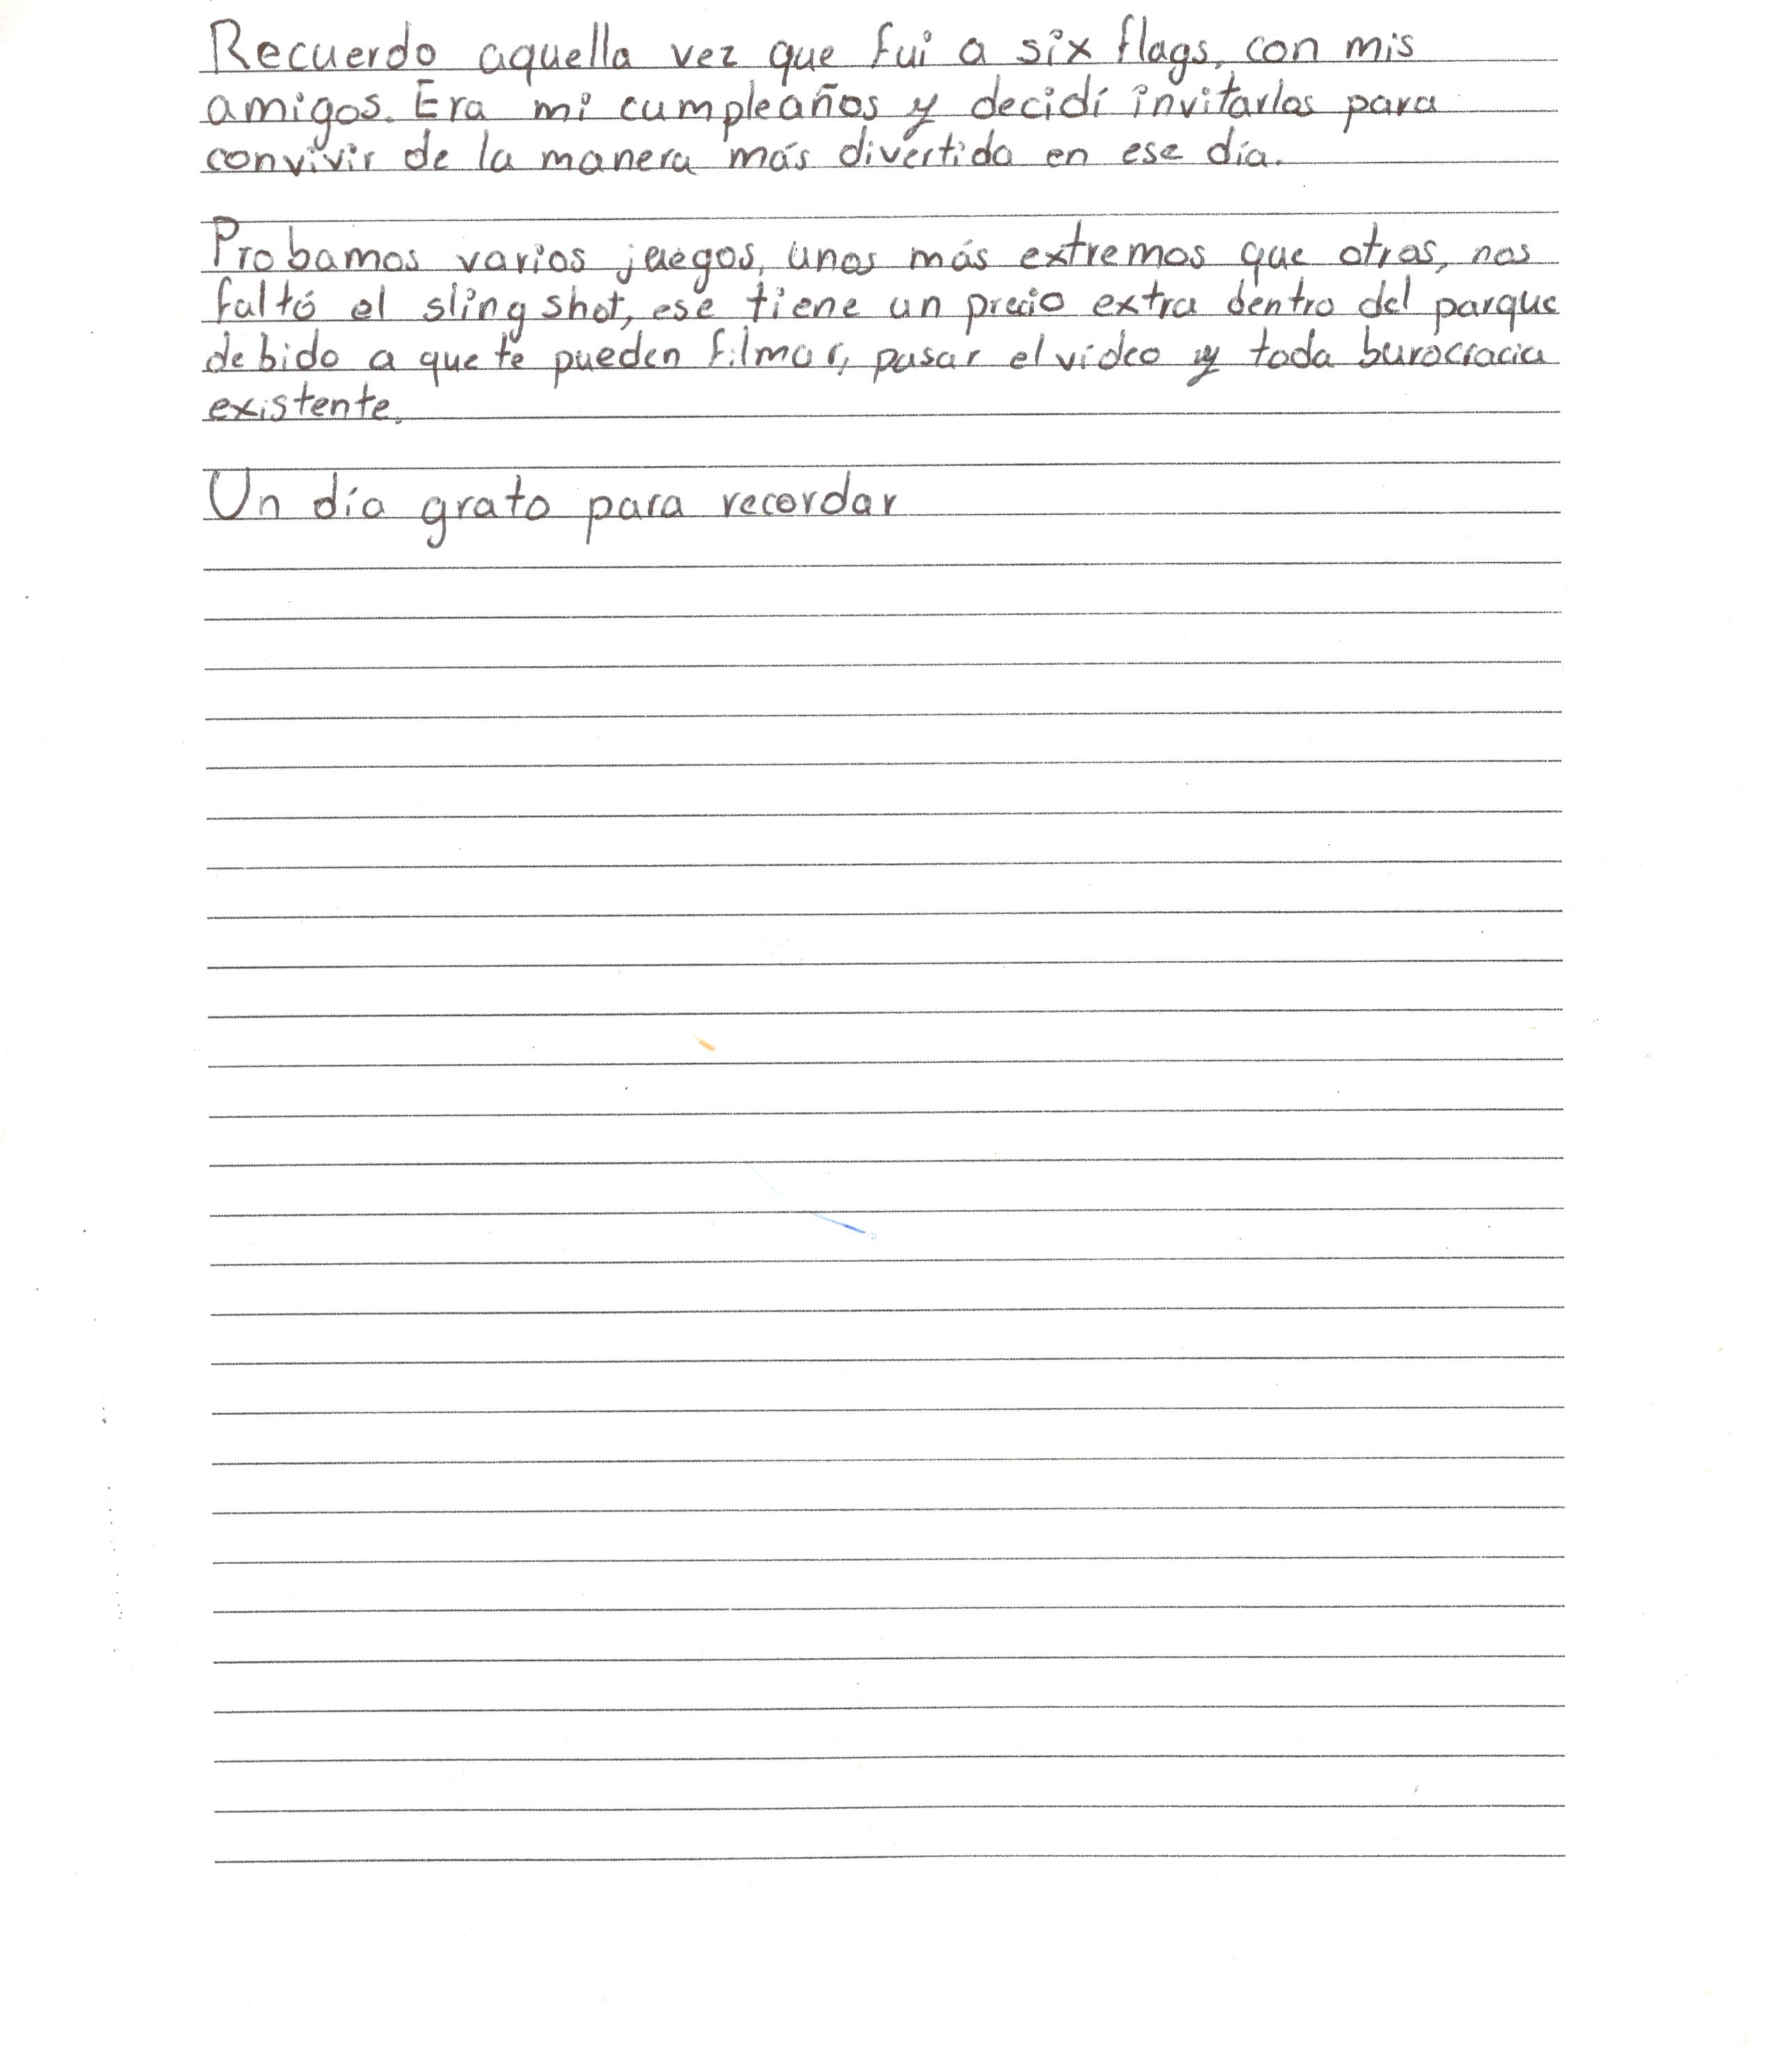 Recuerdo aquella vez que fui a six flags, con mis
amigos. Era mi cumpleaños y decidí invitarlos para
convivir de la manera más divertida en ese día.
Probamos varios juegos, unos más extremos que otros, nos
faltó el sling shot, ese tiene un precio extra dentro del parque
debido a que te pueden filmar, pasar el video y toda burocracia
existente.
Un día grato para recordar